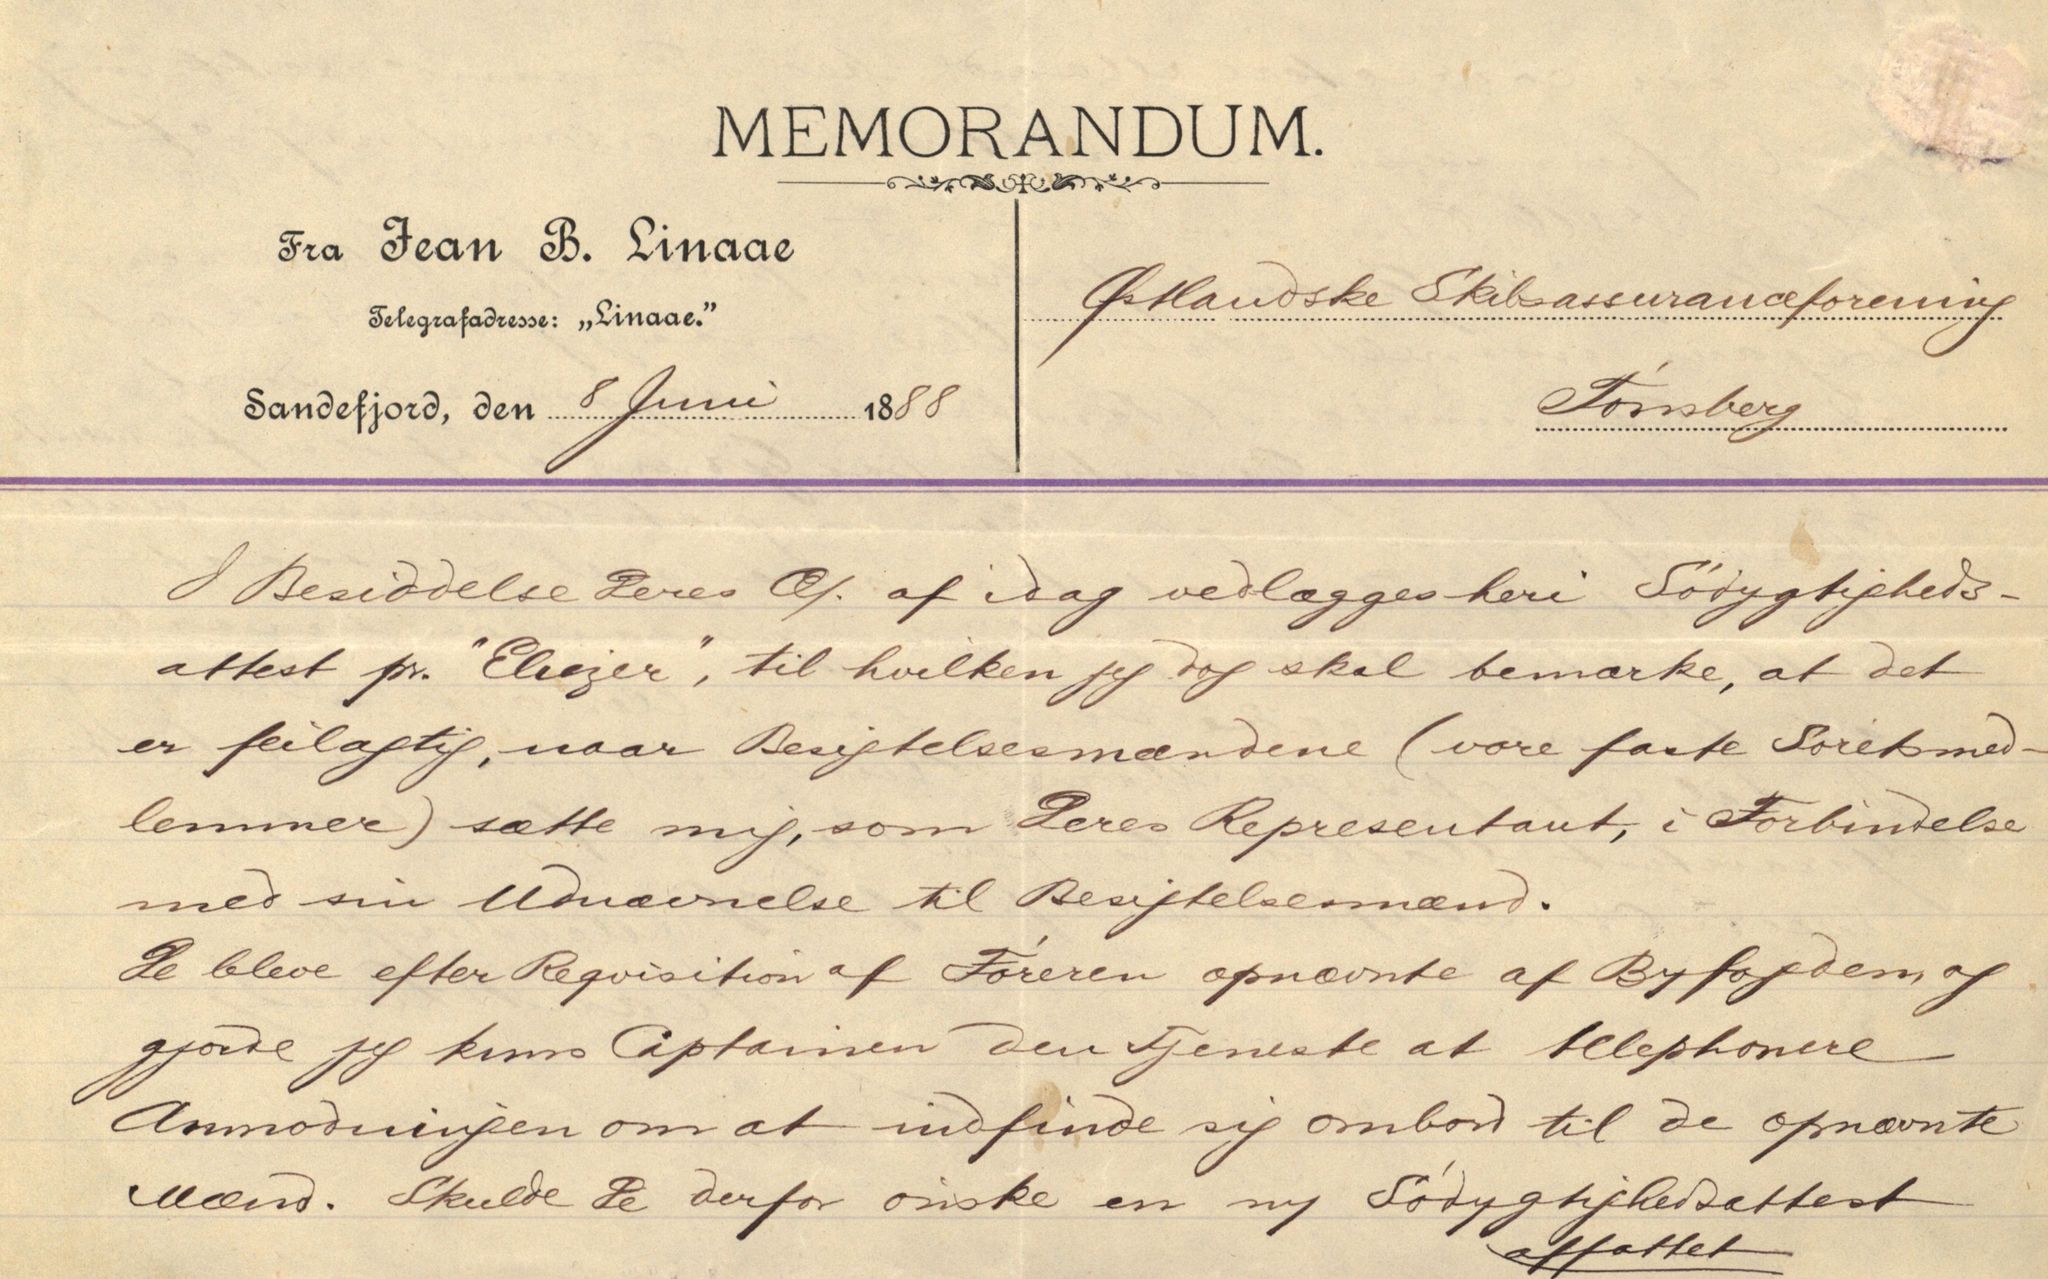 MEMORANDUM.
Fra Jean B. Linaae
Telegrafadresse: „Linaae.”
Sandefjord, den 8 Juni 1888
Østlandske Skibsassuranceforening
Tönsberg
I Besiddelse Deres Æ/. af idag vedlægges heri Södygtigheds-
attest pr. "Eliezer", til hvilken jeg dog skal bemærke, at det
er feilagtig, naar Besigtelsesmændene (vore faste Söretsmed-
lemmer) sætte mig, som Deres Representant, i Forbindelse
med sin Udnævnelse til Besigtelsesmænd.
De bleve efter Requisition af Föreren opnævnte af Byfogden, og
gjorde jeg kuns Captainen den Tjeneste at telephonere
Anmodningen om at indfinde sig ombord til de opnævnte
Mænd. Skulde De derfor önske en ny Södygtighedsattest
affattet